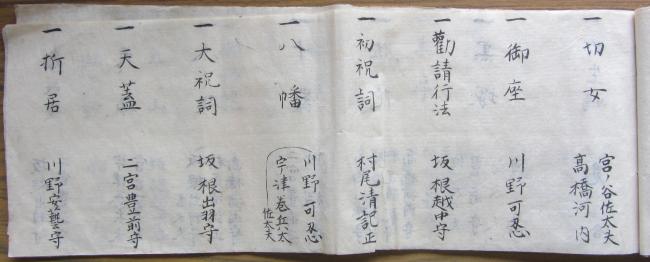 一 切女 宮ノ谷佐太夫
高橋河内
一 御座 川野可忍
一 勸請行法 坂根越中守
一 初祝詞 村尾清記正
一 八幡 川野可忍
宇津巻兵太
佐太夫
一 大祝詞 坂根出羽守
一 天蓋 二宮豊前守
一 折居 川野安藝守